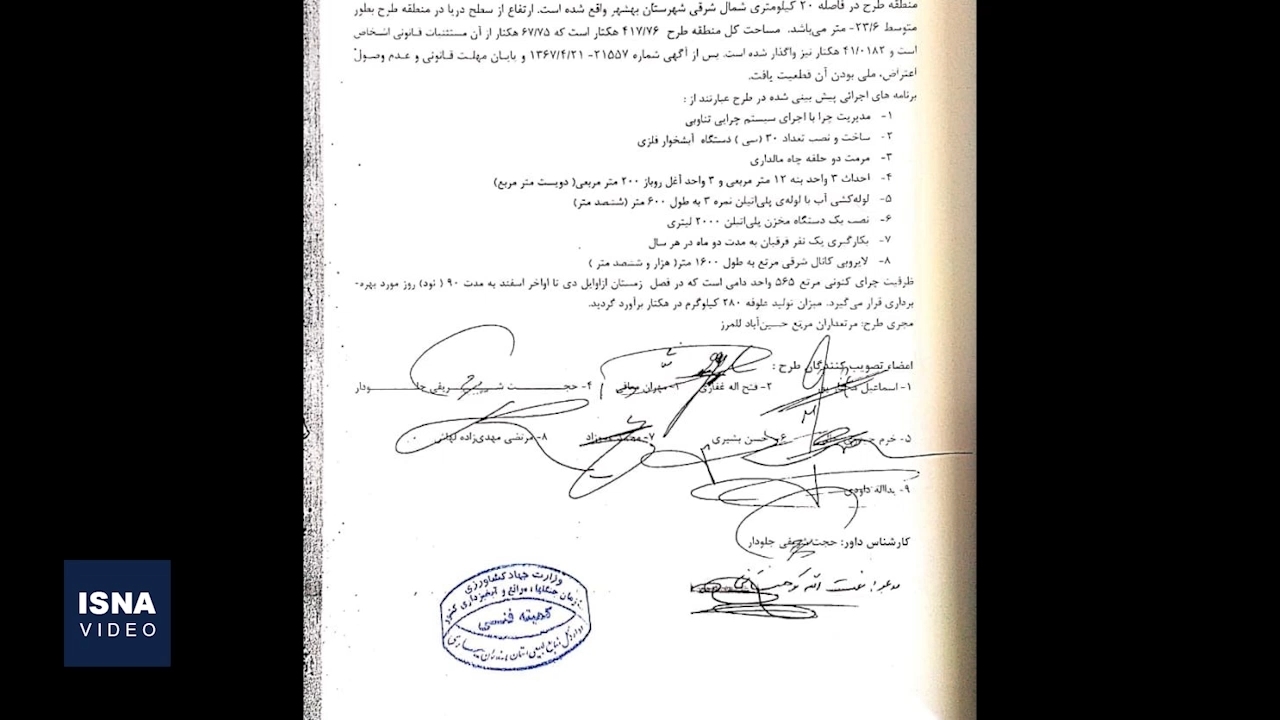 منطقه طرح در فاصله ۲۰ کیلومتری شمال شرقی شهرستان بهشهر واقع شده است. ارتفاع از سطح دریا در منطقه طرح بطور
متوسط ۲۳/۶- متر می‌باشد. مساحت کل منطقه طرح ۴۱۷/۷۶ هکتار است که ۶۷/۷۵ هکتار از آن مستثنیات قانونی اشخاص
است و ۴۱/۰۱۸۲ هکتار نیز واگذار شده است. پس از آگهی شماره ۲۱۵۵۷- ۱۳۶۷/۴/۲۱ و پایان مهلت قانونی و عدم وصول
اعتراض، ملی بودن آن قطعیت یافت.
برنامه های اجرائی پیش بینی شده در طرح عبارتند از :
۱- مدیریت چرا با اجرای سیستم چرایی تناوبی
۲- ساخت و نصب تعداد ۳۰ (سی ) دستگاه آبشخوار فلزی
۳- مرمت دو حلقه چاه مالداری
۴- احداث ۳ واحد بنه ۱۲ متر مربعی و ۳ واحد آغل روباز ۲۰۰ متر مربعی( دویست متر مربع)
۵- لوله‌کشی آب با لوله‌ی پلی‌اتیلن نمره ۳ به طول ۶۰۰ متر (ششصد متر)
۶- نصب یک دستگاه مخزن پلی‌اتیلن ۲۰۰۰ لیتری
۷- بکارگیری یک نفر قرقبان به مدت دو ماه در هر سال
۸- لایروبی کانال شرقی مرتع به طول ۱۶۰۰ متر( هزار و ششصد متر )
ظرفیت چرای کنونی مرتع ۵۶۵ واحد دامی است که در فصل زمستان ازاوایل دی تا اواخر اسفند به مدت ۹۰ ( نود) روز مورد بهره-
برداری قرار می‌گیرد. میزان تولید علوفه ۲۸۰ کیلوگرم در هکتار برآورد گردید.
مجری طرح: مرتعداران مرتع حسین‌آباد للمرز
اعضاء تصویب کنندگان طرح :
۱- اسماعیل ۲- فتح اله غفاری ۳- مهران ۴- حجت شریفی جلودار
۵- خرم ۶- حسن بشیری ۷- محمد ۸- مرتضی مهدی‌زاده
۹- یداله داودی
کارشناس داور: حجت شریفی جلودار
نعمت الله
وزارت جهاد کشاورزی
سازمان جنگلها، مراتع و آبخیزداری کشور
کمیته فنی
اداره کل منابع طبیعی استان مازندران ساری
ISNA
VIDEO